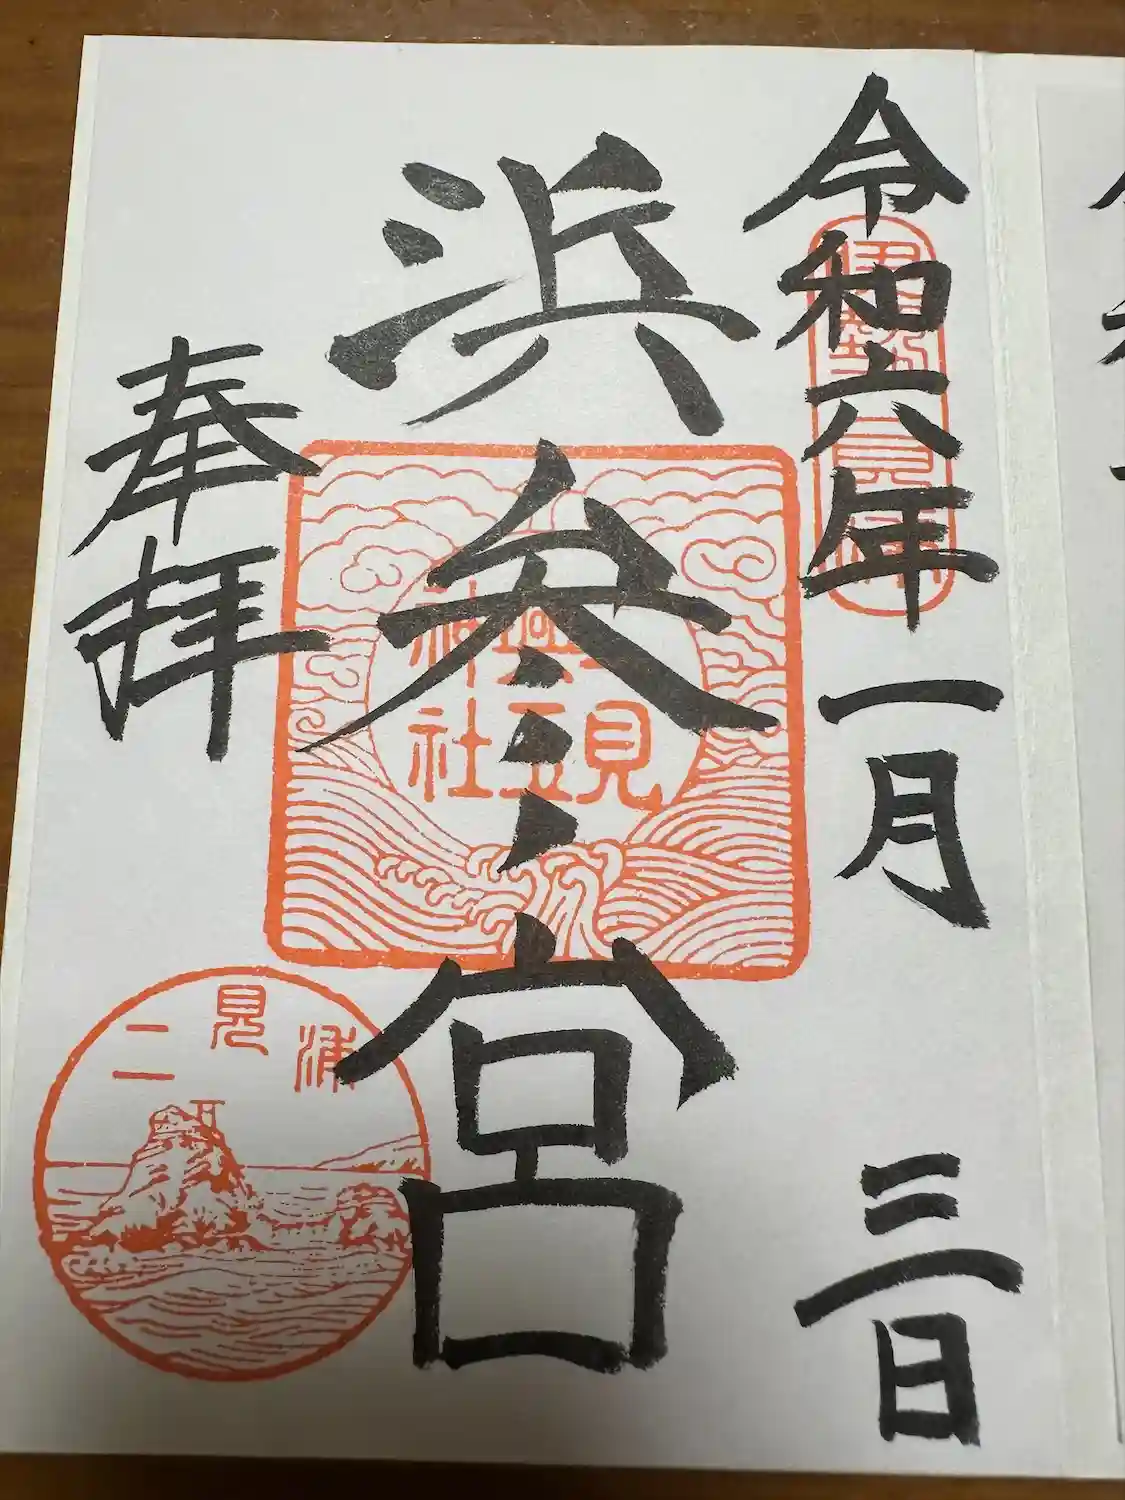 令和六年一月三日
浜参宮
奉拝
二見興玉神社
二見浦